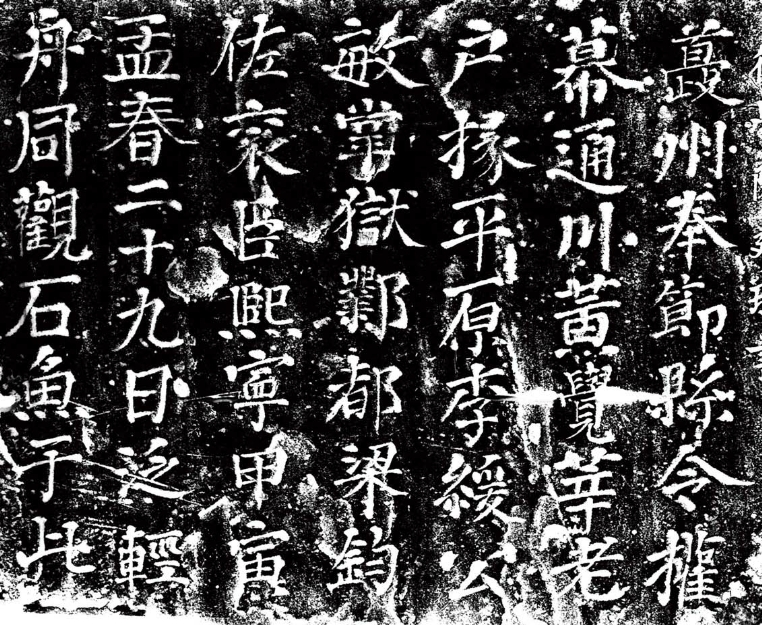 夔州奉節縣令權
幕通川黃覺莘老
户掾平原李緩公
敏掌獄酆都梁鈞
佐袞臣熙寧甲寅
孟春二十九日泛輕
舟同觀石魚于此